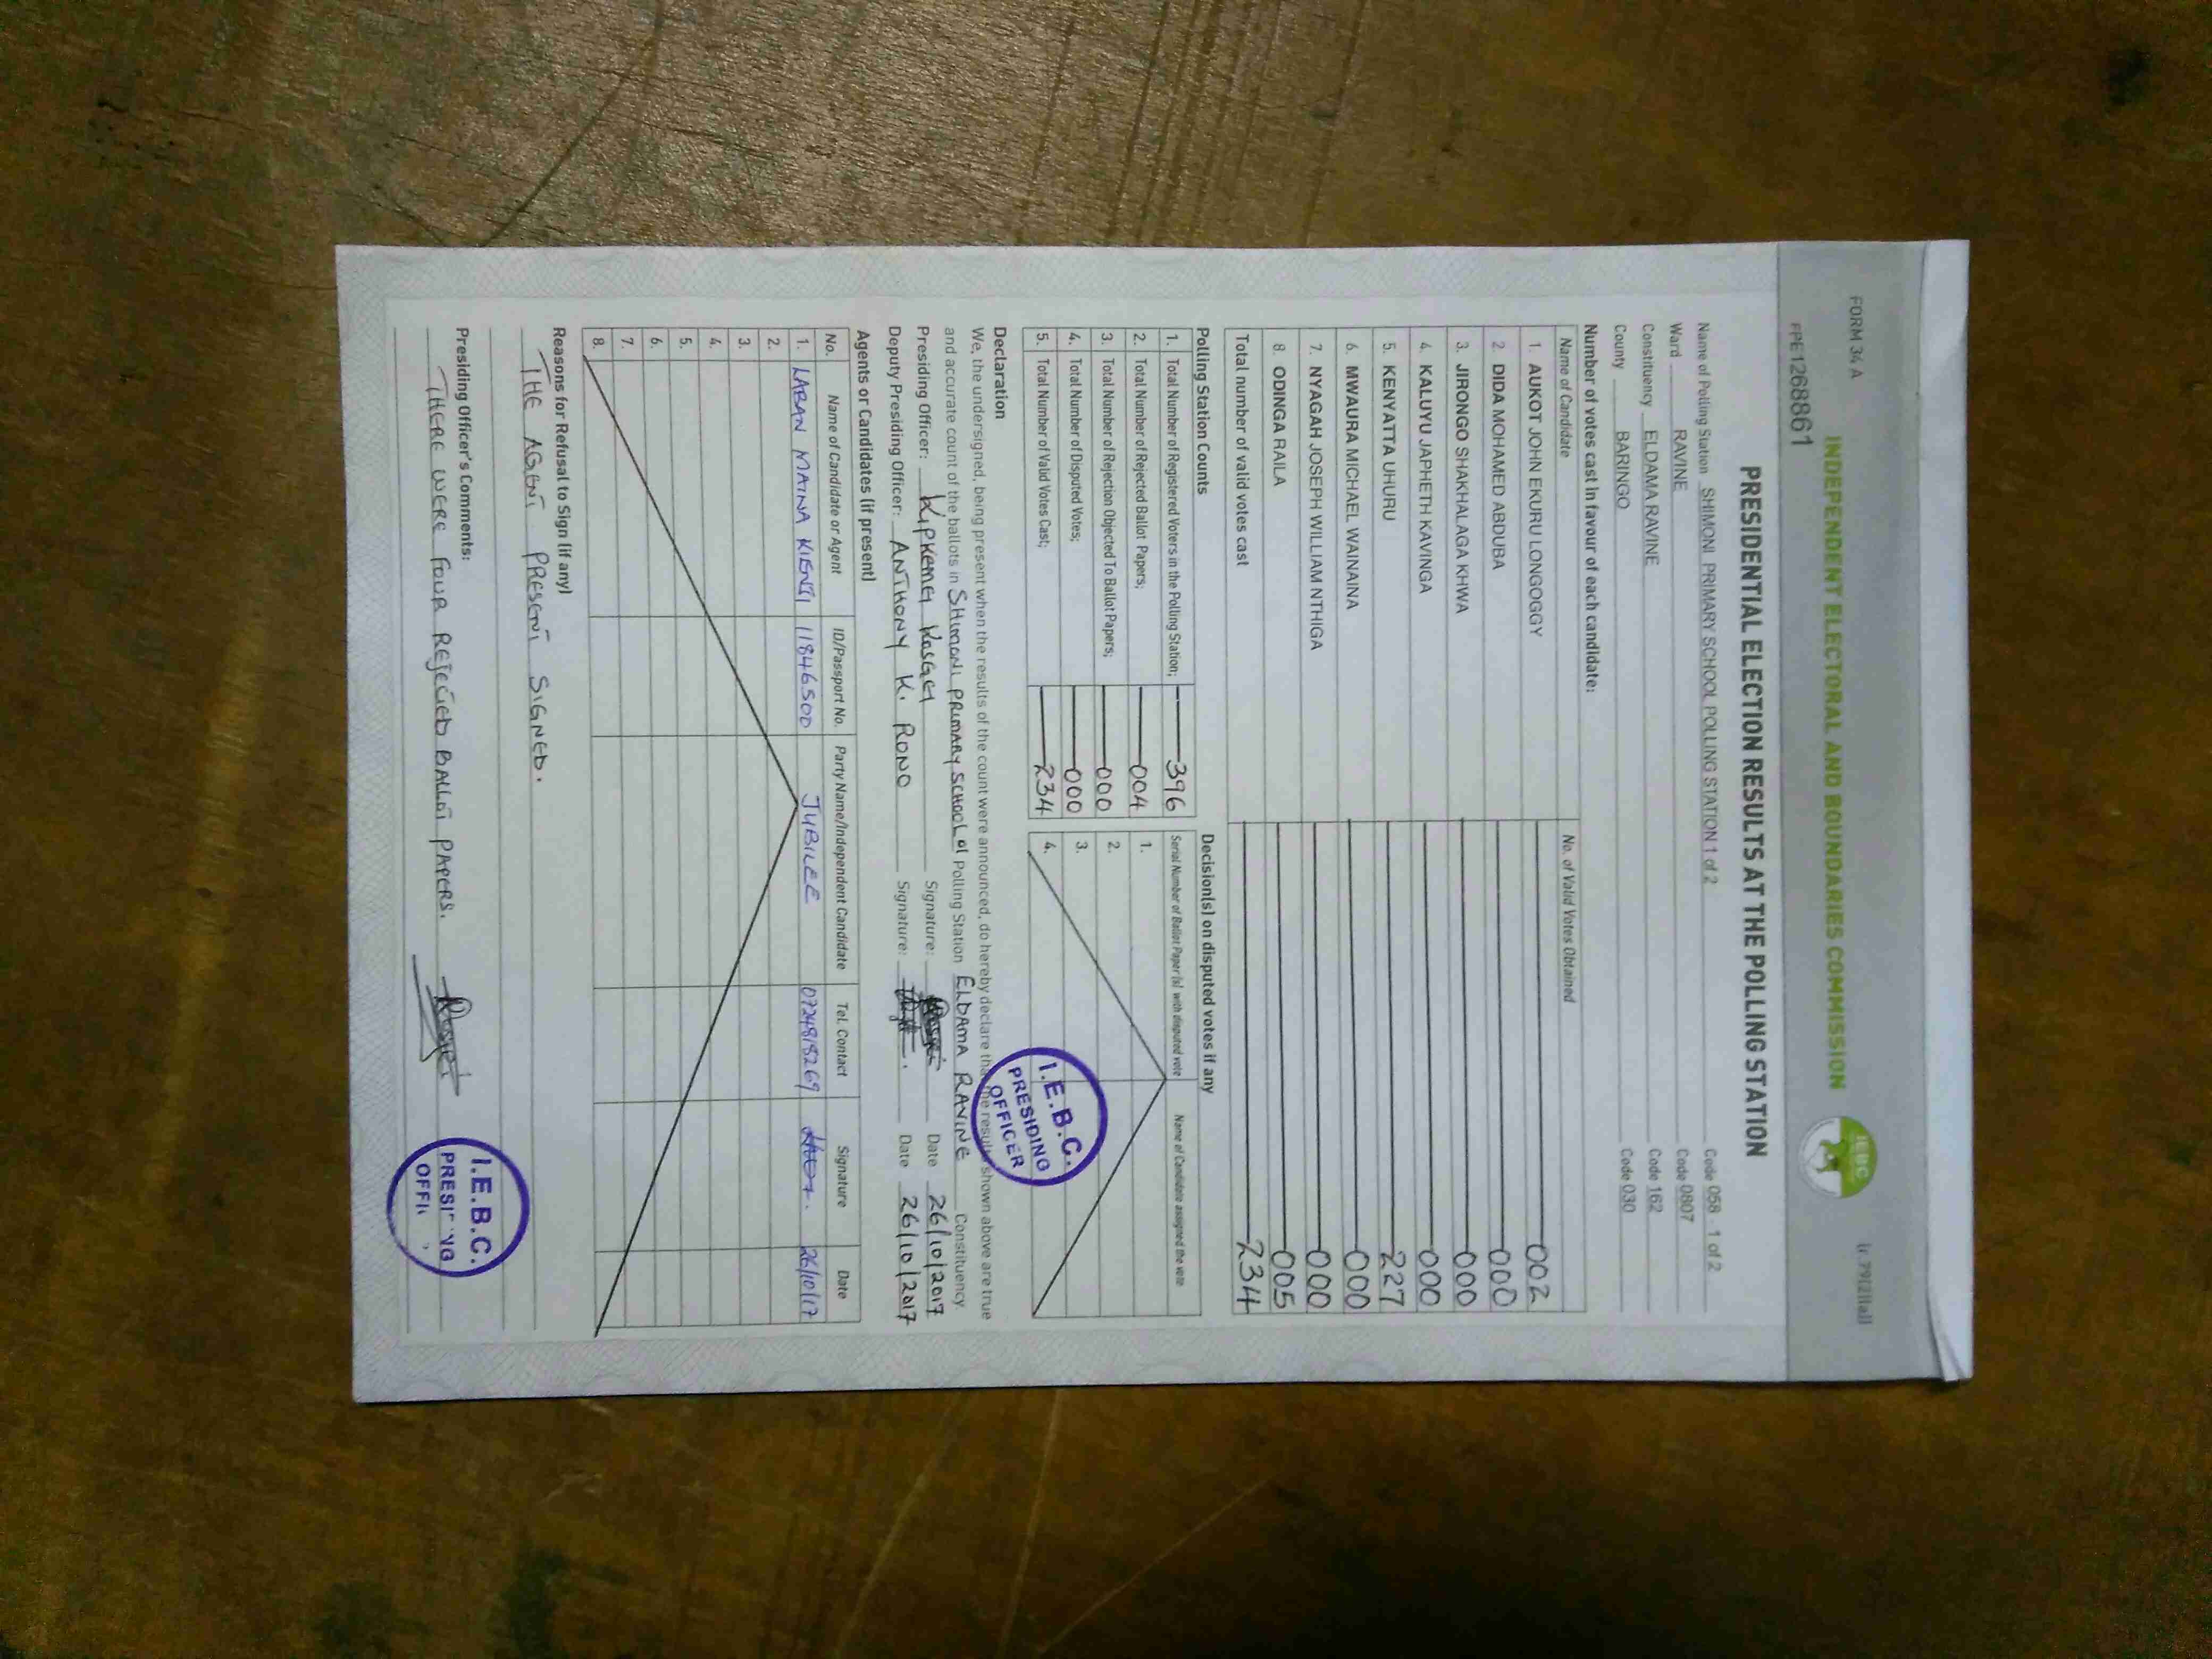 FORM 34 A
(r.79(2)(a))
INDEPENDENT ELECTORAL AND BOUNDARIES COMMISSION
IEBC
FPE1268861
PRESIDENTIAL ELECTION RESULTS AT THE POLLING STATION
Name of Polling Station SHIMONI PRIMARY SCHOOL POLLING STATION 1 of 2 Code 058 - 1 of 2
Ward RAVINE Code 0807
Constituency ELDAMA RAVINE Code 162
County BARINGO Code 030
Number of votes cast in favour of each candidate:
Name of Candidate No. of Valid Votes Obtained
1. AUKOT JOHN EKURU LONGOGGY 002
2. DIDA MOHAMED ABDUBA 000
3. JIRONGO SHAKHALAGA KHWA 000
4. KALUYU JAPHETH KAVINGA 000
5. KENYATTA UHURU 227
6. MWAURA MICHAEL WAINAINA 000
7. NYAGAH JOSEPH WILLIAM NTHIGA 000
8. ODINGA RAILA 005
Total number of valid votes cast 234
Polling Station Counts
1. Total Number of Registered Voters in the Polling Station; 396
2. Total Number of Rejected Ballot Papers; 004
3. Total Number of Rejection Objected To Ballot Papers; 000
4. Total Number of Disputed Votes; 000
5. Total Number of Valid Votes Cast; 234
Decision(s) on disputed votes if any
Serial Number of Ballot Paper(s) with disputed vote Name of Candidate assigned the vote
1.
2.
3.
4.
I.E.B.C.
PRESIDING
OFFICER
Declaration
We, the undersigned, being present when the results of the count were announced, do hereby declare that the results shown above are true
and accurate count of the ballots in SHIMONI PRIMARY SCHOOL 01 Polling Station ELDAMA RAVINE Constituency.
Presiding Officer: KIPKEMEI KOSGEI Signature: Date 26/10/2017
Deputy Presiding Officer: ANTHONY K. RONO Signature: Date 26/10/2017
Agents or Candidates (if present)
No. Name of Candidate or Agent ID/Passport No. Party Name/Independent Candidate Tel. Contact Signature Date
1. LABAN MAINA 11846500 JUBILEE 0724818269 26/10/17
2.
3.
4.
5.
6.
7.
8.
Reasons for Refusal to Sign (if any)
THE AGENT PRESENT SIGNED.
Presiding Officer's Comments:
THERE WERE FOUR REJECTED BALLOT PAPERS.
I.E.B.C.